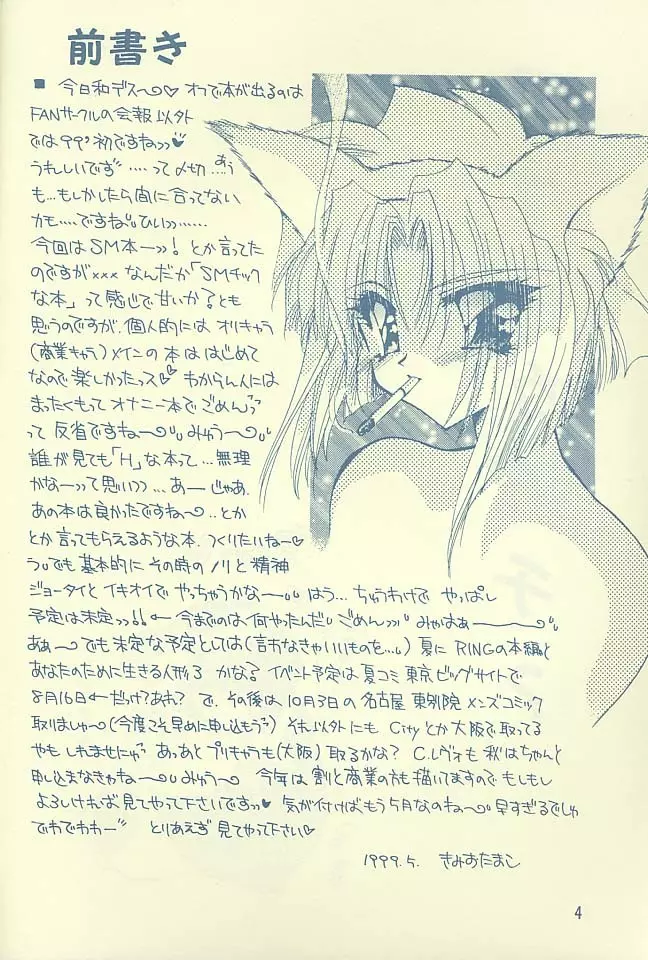 前書き
■ 今日和デス〜♡ オフで本が出るのは
FANサークルの会報以外
では'99'初ですねッ♥
うれしいです゛‥‥って〆切‥あう
も…もしかしたら間に合ってない
かも‥‥ですね〃ひいッ‥‥‥
今回はSM本ーッ! とか言ってた
のですが××× なんだか「SMチック
な本」って感じで甘いか?とも
思うのですが、個人的にはオリキャラ
(商業キャラ)メインの本ははじめて
なので楽しかったっス♡ わからん人には
まったくもってオナニー本でごめんっ
って反省ですね〜〃みゅう〜〃
誰が見ても「H」な本って…無理
かなーって思いッ…あーじゃあ
あの本は良かったですね〜‥とか
とか言ってもらえるような本、つくりたいね〜♡
う〃でも基本的にその時のノリと精神
ジョータイとイキオイでやっちゃうかな〜〃 はう… ちゅうわけで やっぱし
予定は未定ッ!! ← 今までのは何やったんだ〃ごめんッ〃 みゃはぁー〃
あぁ〜 でも未定な予定としては(言わなきゃいいものを…)夏にRINGの本編と
あなたのために生きる人形3 かな? イベント予定は夏コミ東京ビッグサイトで
8月16日←だっけ?あれ? で、その後は10月3日の名古屋 東別院 メンズコミック
取りましゅ〜(今度こそ早めに申し込もうっ) それ以外にも Cityとか大阪で取ってる
やもしれませにゃっ あっあと プリキャラも(大阪)取るかな? C.レヴォも秋はちゃんと
申し込まなきゃね〜〃みゅう〜 今年は割と商業の方も描いてますのでもしもし
よろしければ見てやって下さいですッ♥ 気が付けばもう5月なのね〜〃早すぎるでしゅ
でわでわわー〃 とりあえず見てやって下さい♡
1999.5. きみおたまこ
4